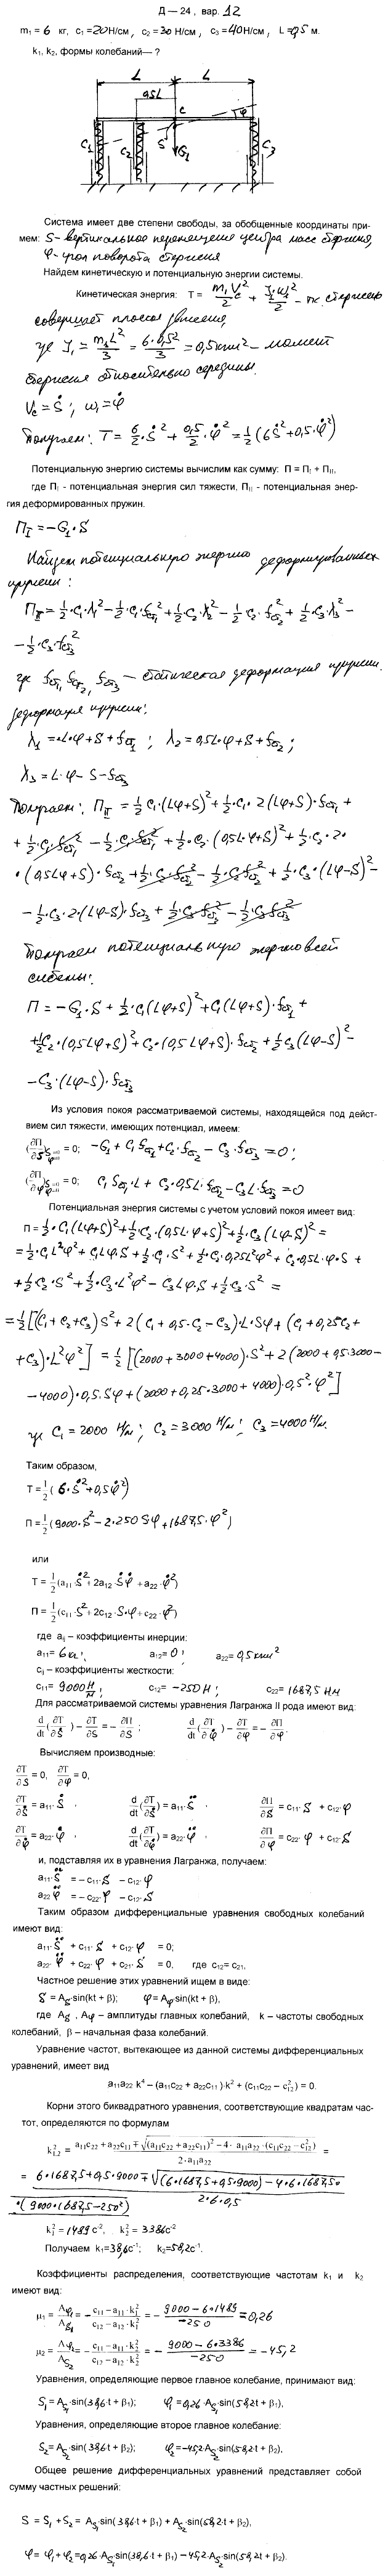 Д — 24 , вар. 12
m₁ = 6 кг, c₁ =20Н/см, c₂ =30 Н/см, c₃ =40Н/см, L =0,5 м.
k₁, k₂, формы колебаний— ?
L L
0,5L
C
φ
C₁ C₂ S G₁ C₃
Система имеет две степени свободы, за обобщенные координаты при-
мем: S- вертикальное перемещение центра масс стержня,
φ- угол поворота стержня
Найдем кинетическую и потенциальную энергии системы.
Кинетическая энергия: T = m₁V_c²/2 + J₁ω₁²/2 - т.к. стержень
совершает плоское движение,
где J₁ = m₁L²/3 = 6·0,5²/3 = 0,5 кгм² - момент
стержня относительно середины.
V_c = Ṡ ; ω₁ = φ̇
Получаем: T = 6/2·Ṡ² + 0,5/2·φ̇² = 1/2(6Ṡ² + 0,5·φ̇²)
Потенциальную энергию системы вычислим как сумму: П = П_I + П_II,
где П_I - потенциальная энергия сил тяжести, П_II - потенциальная энер-
гия деформированных пружин.
П_I = -G₁·S
Найдем потенциальную энергию деформированных
пружин:
П_II = 1/2·c₁·λ₁² - 1/2·c₁·f_ст₁² + 1/2·c₂·λ₂² - 1/2·c₂·f_ст₂² + 1/2·c₃·λ₃² -
- 1/2·c₃·f_ст₃²
где f_ст₁, f_ст₂, f_ст₃ — статическая деформация пружин.
деформация пружин:
λ₁ = L·φ+S+f_ст₁ ; λ₂ = 0,5L·φ+S+f_ст₂ ;
λ₃ = L·φ - S - f_ст₃
Получаем: П_II = 1/2·c₁(Lφ+S)² + 1/2·c₁·2(Lφ+S)·f_ст₁ +
+ 1/2·c₁·f_ст₁² - 1/2·c₁·f_ст₁² + 1/2·c₂·(0,5L·φ+S)² + 1/2·c₂·2·
·(0,5Lφ+S)·f_ст₂ + 1/2·c₂·f_ст₂² - 1/2·c₂·f_ст₂² + 1/2·c₃·(Lφ-S)² -
- 1/2·c₃·2·(Lφ-S)·f_ст₃ + 1/2·c₃·f_ст₃² - 1/2·c₃·f_ст₃²
Получаем потенциальную энергию всей
системы:
П = -G₁·S + 1/2·c₁(Lφ+S)² + c₁(Lφ+S)·f_ст₁ +
+ 1/2c₂·(0,5Lφ+S)² + c₂·(0,5Lφ+S)·f_ст₂ + 1/2c₃(Lφ-S)² -
- c₃·(Lφ-S)·f_ст₃
Из условия покоя рассматриваемой системы, находящейся под дейст-
вием сил тяжести, имеющих потенциал, имеем:
(∂П/∂S)_{S=0, φ=0} = 0; -G₁ + c₁f_ст₁ + c₂·f_ст₂ - c₃·f_ст₃ = 0 ;
(∂П/∂φ)_{S=0, φ=0} = 0; c₁f_ст₁·L + c₂·0,5L·f_ст₂ - c₃L·f_ст₃ = 0
Потенциальная энергия системы с учетом условий покоя имеет вид:
П = 1/2·c₁(Lφ+S)² + 1/2·c₂·(0,5Lφ+S)² + 1/2·c₃(Lφ-S)² =
= 1/2·c₁L²φ² + c₁Lφ·S + 1/2·c₁·S² + 1/2·c₂·0,25L²φ² + c₂·0,5L·φ·S +
+ 1/2c₂·S² + 1/2·c₃·L²φ² - c₃Lφ·S + 1/2·c₃·S² =
= 1/2[(c₁+c₂+c₃)S² + 2(c₁+0,5·c₂-c₃)·L·Sφ + (c₁+0,25c₂+
+c₃)·L²φ²] = 1/2[(2000+3000+4000)·S² + 2(2000+0,5·3000-
-4000)·0,5·Sφ + (2000+0,25·3000+4000)·0,5²·φ²]
где c₁=2000 Н/м ; c₂=3000 Н/м ; c₃=4000 Н/м.
Таким образом,
T=1/2(6·Ṡ²+0,5φ̇²)
П=1/2(9000·S²-2·250Sφ+1687,5·φ²)
или
T = 1/2(a₁₁·Ṡ²+ 2a₁₂·Ṡ·φ̇ +a₂₂·φ̇²)
П = 1/2(c₁₁·S²+ 2c₁₂·S·φ +c₂₂·φ²)
где aᵢⱼ – коэффициенты инерции:
a₁₁= 6 кг ; a₁₂= 0 ; a₂₂= 0,5 кгм²
cᵢⱼ – коэффициенты жесткости:
c₁₁= 9000 Н/м ; c₁₂= -250 Н ; c₂₂= 1687,5 Нм
Для рассматриваемой системы уравнения Лагранжа II рода имеют вид:
d/dt(∂T/∂Ṡ) – ∂T/∂S = – ∂П/∂S ; d/dt(∂T/∂φ̇) – ∂T/∂φ = – ∂П/∂φ .
Вычисляем производные:
∂T/∂S = 0, ∂T/∂φ = 0,
∂T/∂Ṡ = a₁₁·Ṡ , d/dt(∂T/∂Ṡ) = a₁₁·S̈ , ∂П/∂S = c₁₁·S + c₁₂·φ
∂T/∂φ̇ = a₂₂·φ̇ , d/dt(∂T/∂φ̇) = a₂₂·φ̈ , ∂П/∂φ = c₂₂·φ + c₁₂·S
и, подставляя их в уравнения Лагранжа, получаем:
a₁₁·S̈ = – c₁₁·S – c₁₂·φ
a₂₂·φ̈ = – c₂₂·φ – c₁₂·S
Таким образом дифференциальные уравнения свободных колебаний
имеют вид:
a₁₁·S̈ + c₁₁·S + c₁₂·φ = 0;
a₂₂·φ̈ + c₂₂·φ + c₂₁·S = 0, где c₁₂= c₂₁.
Частное решение этих уравнений ищем в виде:
S = A_S·sin(kt + β); φ = A_φ·sin(kt + β),
где A_S , A_φ – амплитуды главных колебаний, k – частоты свободных
колебаний, β – начальная фаза колебаний.
Уравнение частот, вытекающее из данной системы дифференциальных
уравнений, имеет вид
a₁₁a₂₂ k⁴ – (a₁₁c₂₂ + a₂₂c₁₁)·k² + (c₁₁c₂₂ – c₁₂²) = 0.
Корни этого биквадратного уравнения, соответствующие квадратам час-
тот, определяются по формулам
k²₁,₂ = (a₁₁c₂₂ + a₂₂c₁₁ ∓ √((a₁₁c₂₂ + a₂₂c₁₁)² – 4· a₁₁a₂₂ ·(c₁₁c₂₂ – c₁₂²)))/(2·a₁₁a₂₂) =
= 6·1687,5+0,5·9000 ∓ √(6·1687,5+0,5·9000) - 4·6·1687,5·
·(9000·1687,5-250²) / 2·6·0,5
k₁² = 1489 c⁻², k₂² = 3386 c⁻²
Получаем k₁=38,6c⁻¹; k₂=58,2c⁻¹.
Коэффициенты распределения, соответствующие частотам k₁ и k₂
имеют вид:
μ₁ = A_φ₁/A_S₁ = – (c₁₁ – a₁₁·k₁²)/(c₁₂ – a₁₂·k₁²) = – (9000-6·1489)/(-250) = 0,26
μ₂ = A_φ₂/A_S₂ = – (c₁₁ – a₁₁·k₂²)/(c₁₂ – a₁₂·k₂²) = – (9000-6·3386)/(-250) = -45,2
Уравнения, определяющие первое главное колебание, принимают вид:
S₁ = A_S₁·sin(38,6·t + β₁); φ₁=0,26·A_S₁·sin(38,6t + β₁),
Уравнения, определяющие второе главное колебание:
S₂ = A_S₂·sin(38,6t + β₂); φ₂=-45,2·A_S₂·sin(58,2t + β₂),
Общее решение дифференциальных уравнений представляет собой
сумму частных решений:
S = S₁ + S₂ = A_S₁·sin(38,6t + β₁) + A_S₂·sin(58,2·t + β₂),
φ = φ₁ + φ₂ =0,26·A_S₁·sin(38,6·t + β₁) – 45,2·A_S₂·sin(58,2t + β₂).